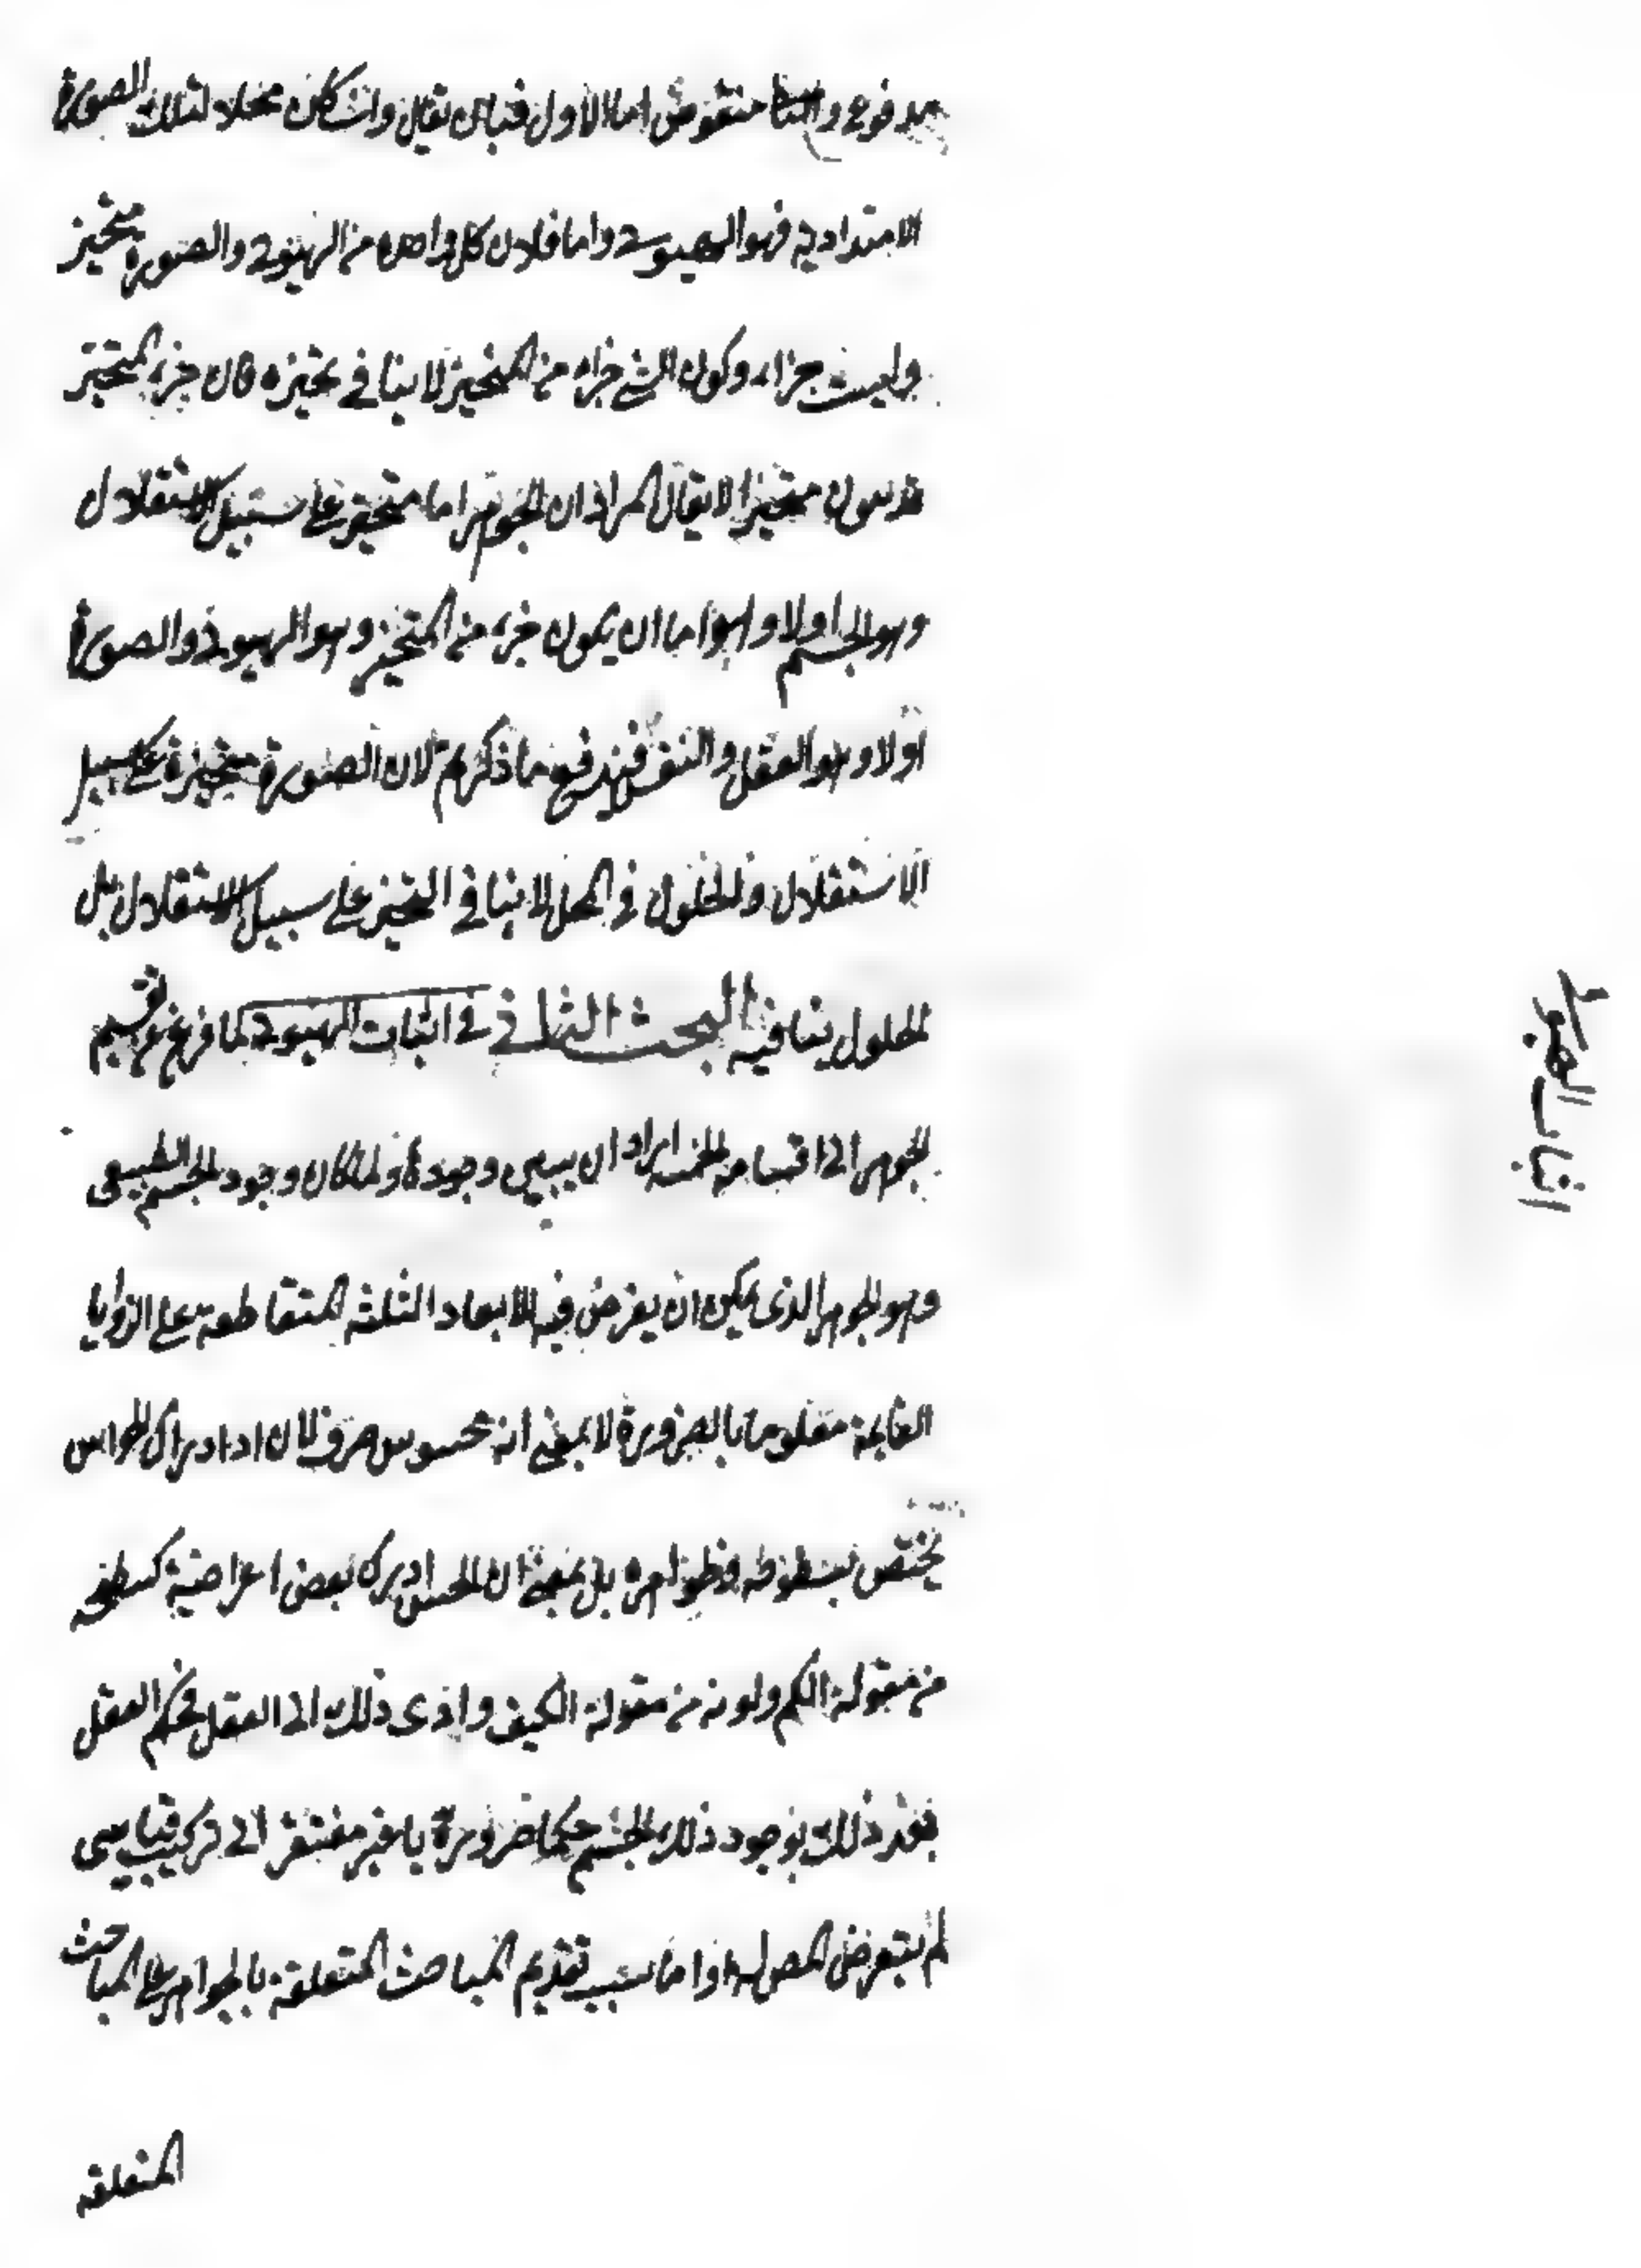 مدفوع والثا منقوض اما الاول فبان يقال وان كان محلا لتلك الصورة
الامتدادية فهو الهيولى واما فلان كل واحد من الهيولى والصورة متحيز
وليست جزاء وكون الشئ جزاء من المتحيز لا ينافى تحيزه فان جزء المتحيز
قد يكون متحيزا لا يقال المراد ان الجوهر اما متحيز على سبيل الاستقلال
وهو الجسم اولا وهو اما ان يكون جزء من المتحيز وهو الهيولى والصورة
اولا وهو العقل والنفس فيندفع ما ذكرتم لان الصورة متحيزة على سبيل
الاستقلال والحلول فى المحل لا ينافى التحيز على سبيل الاستقلال بل
الحلول ينافيه البحث الثانى فى اثبات الهيولى لما فرغ من تقسيم
الجوهر الى اقسامه الخمسة اراد ان يبين وجودها ولما كان وجود الجسم الطبيعى
وهو الجوهر الذى يمكن ان يفرض فيه الابعاد الثلثة المتقاطعة على الزوايا
القايمة معلوما بالضرورة لا بمعنى انه محسوس صرف لان ادراك الحواس
يختص بسطوحه وظواهره بل بمعنى ان الحس ادرك بعض اعراضه كسطحه
من مقولة الكم ولونه من مقولة الكيف وادى ذلك الى العقل فحكم العقل
بعد ذلك بوجود ذلك الجسم حكما ضروريا غير مفتقر الى تركيب قياسى
لم يتعرض المص له واما سبب تقديم المباحث المتعلقة بالجواهر على المباحث
المتعلقة
اثبات الهيولى